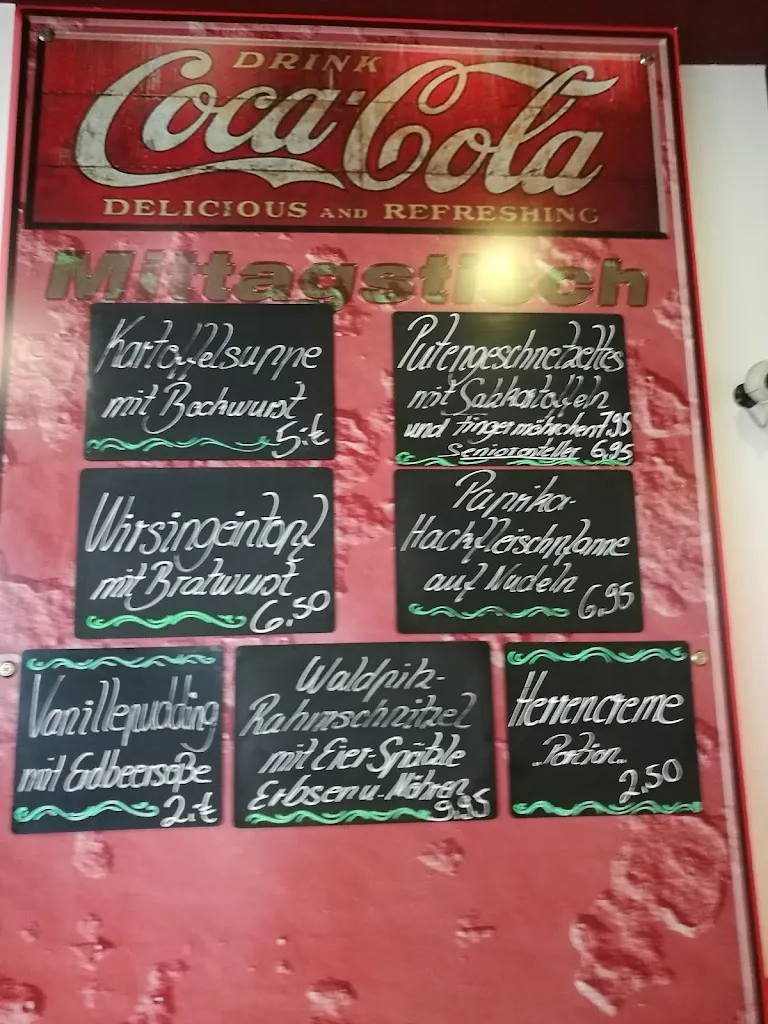 DRINK
Coca-Cola
DELICIOUS AND REFRESHING
Mittagstisch
Kartoffelsuppe
mit Bockwurst
5.-€
Putengeschnetzeltes
mit Salzkartoffeln
und Fingermöhrchen 7.95
Seniorenteller 6,95
Wirsingeintopf
mit Bratwurst
6.50
Paprika-
Hackfleischpfanne
auf Nudeln
6.95
Vanillepudding
mit Erdbeersoße
2.-€
Waldpilz-
Rahmschnitzel
mit Eier-Spätzle
Erbsen u. Möhren
9.95
Herrencreme
..Portion..
2.50